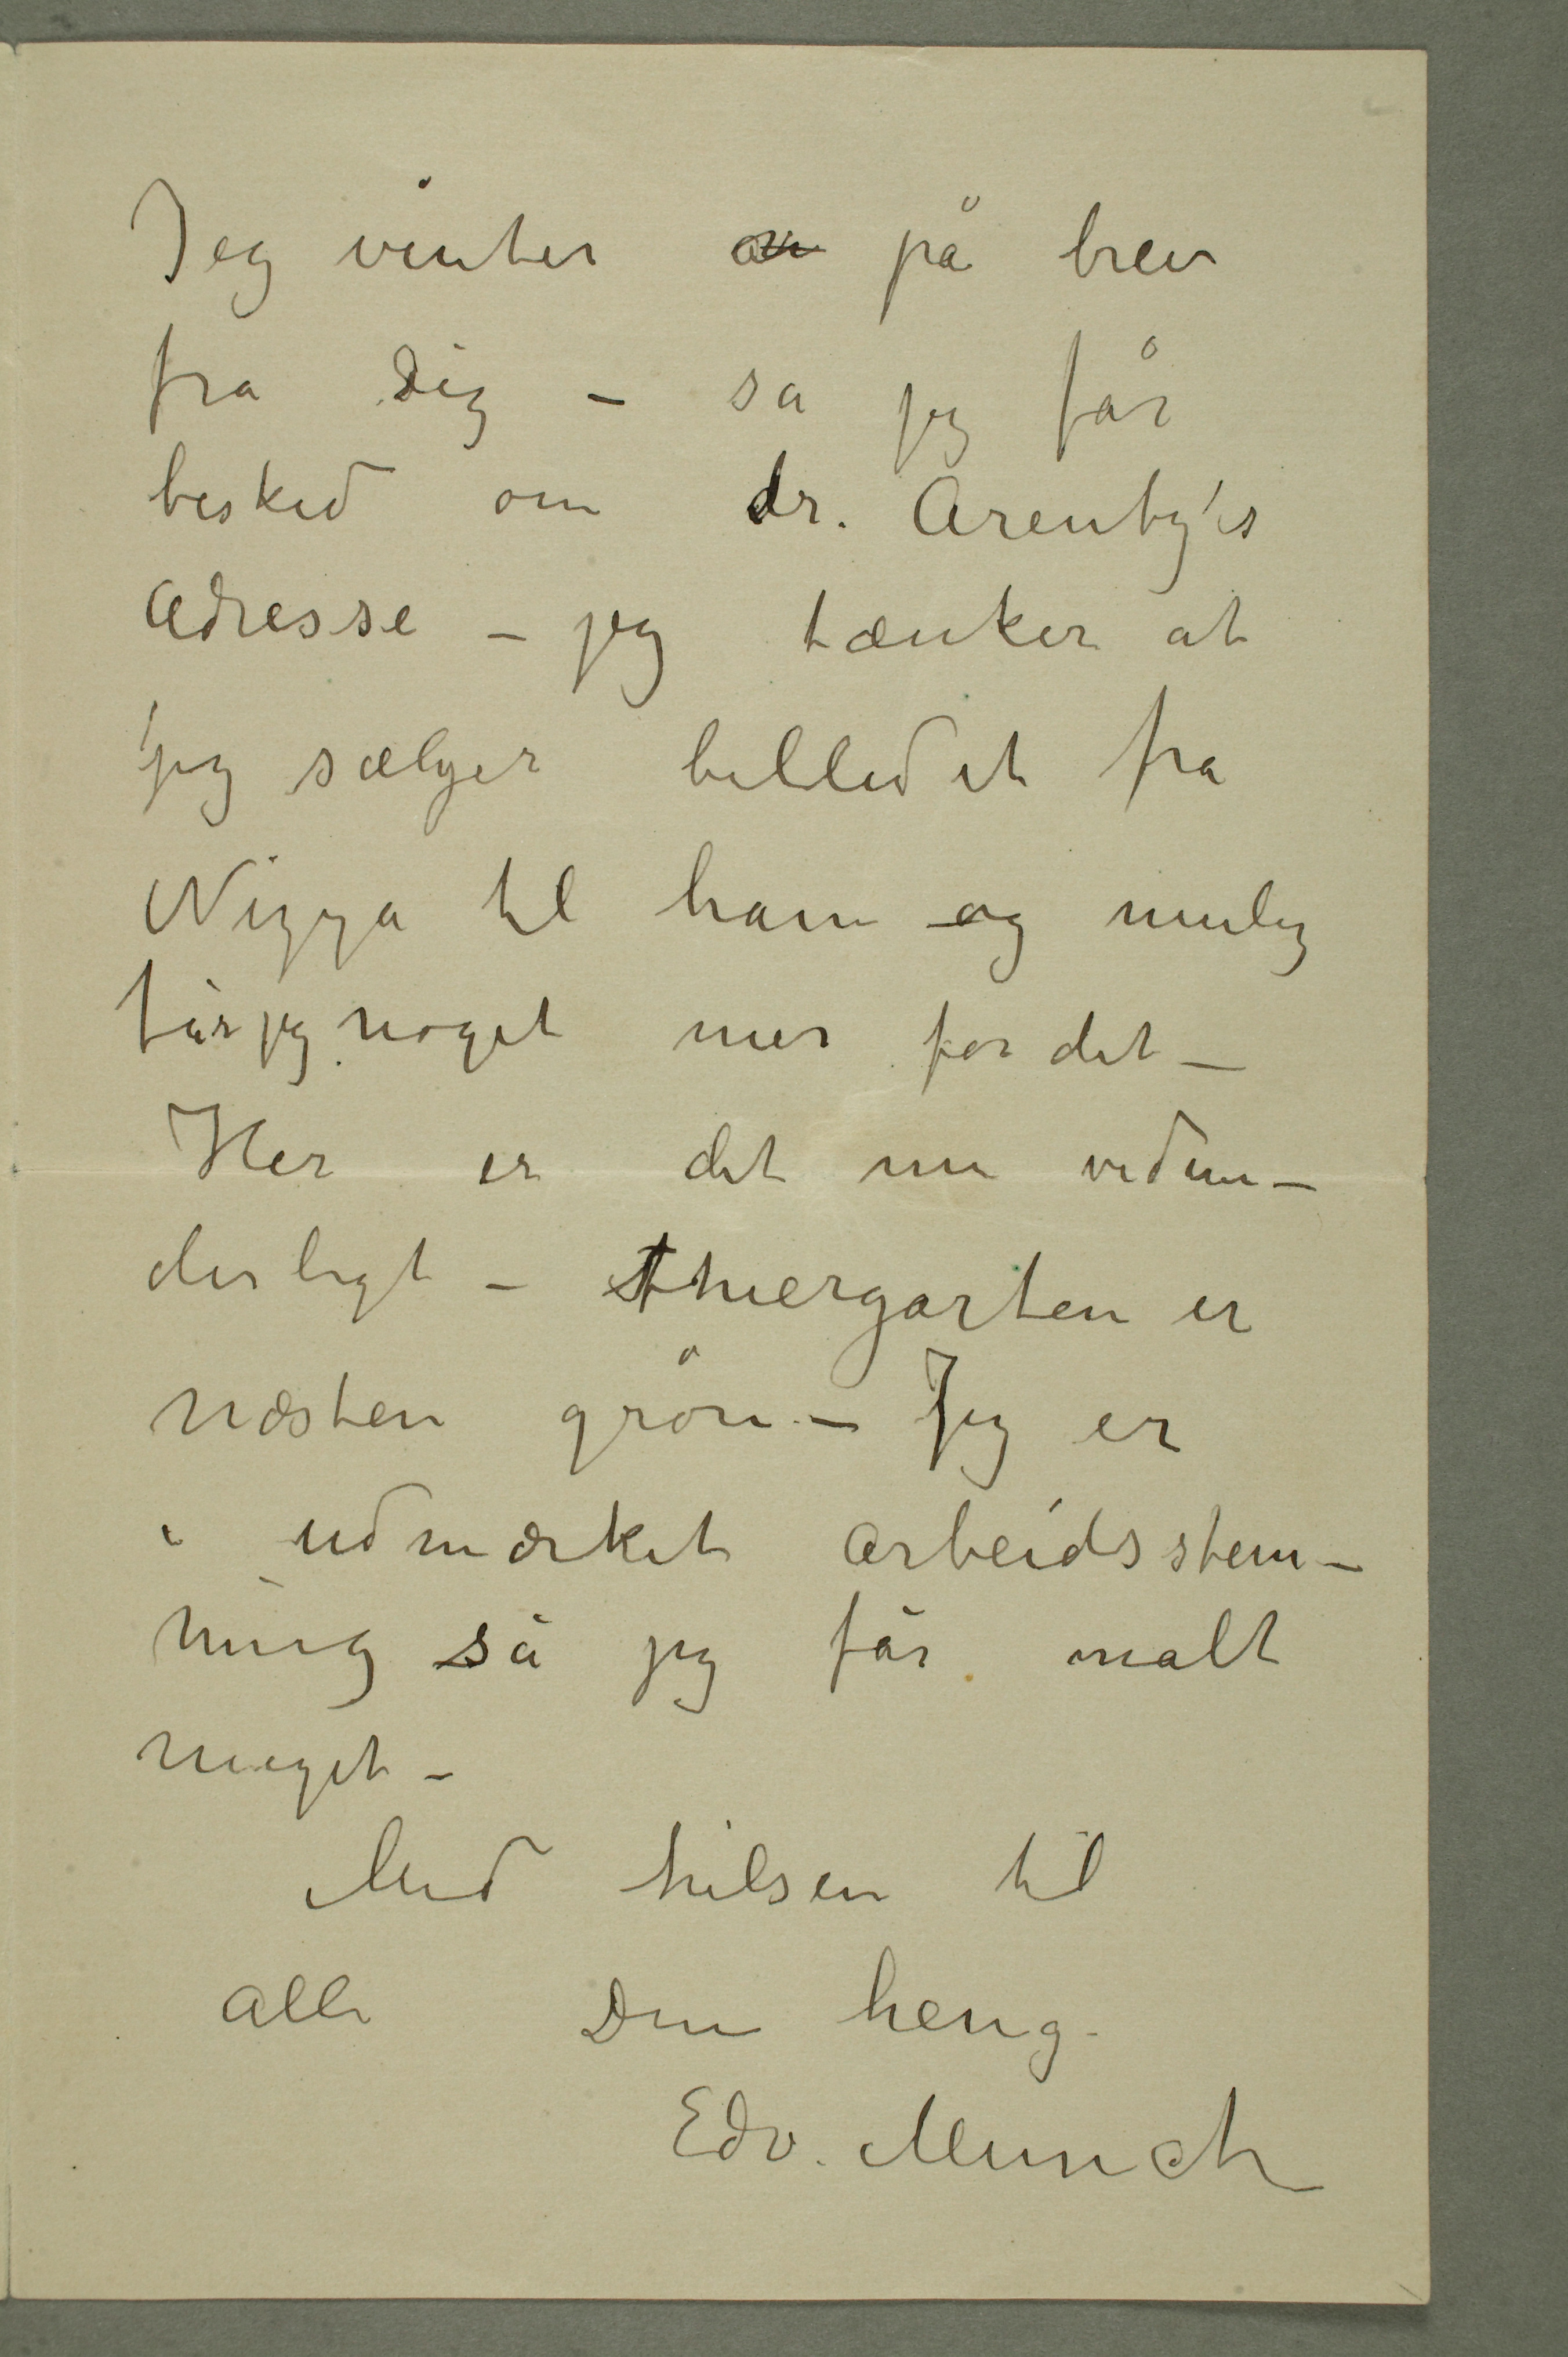 Jeg venter på brev
fra Dig – så jeg får
besked om dr. Arentz's
Adresse – jeg tænker at
jeg sælger billedet fra
Nizza til ham og mulig
får jeg noget mer for det –
Her er det nu vidun-
derligt – Thiergarten er
næsten grön – Jeg er
i udmærket Arbeidsstem-
ning så jeg får malt
meget –
Med hilsen til
alle Din heng.
Edv. Munch